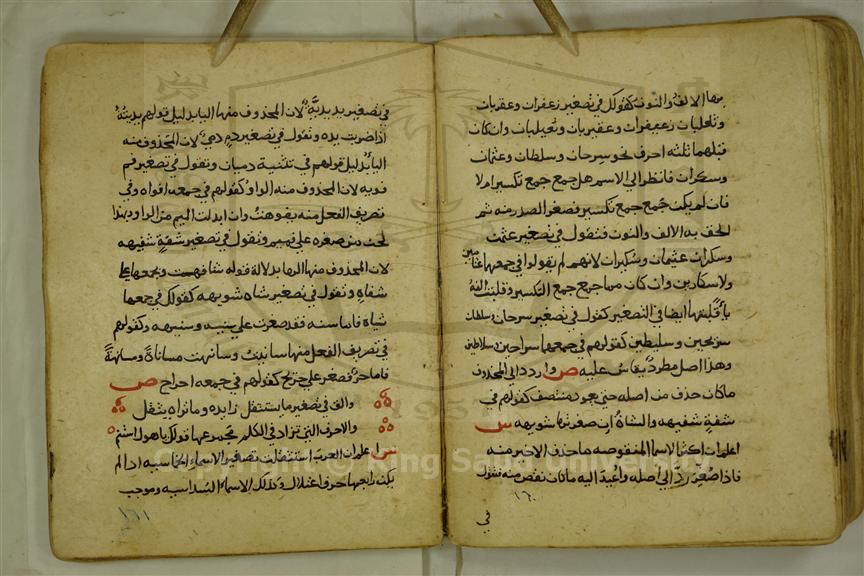 منها الالف والنون كقولك في تصغير زعفران وعقربان
وثعلبان زعيفران وعقيربان وثعيلبان وان كان
قبلهما ثلثه احرف نحو سرحان وسلطان وعثمان
وسكران فانظر الي الاسم هل جمع جمع تكسير ام لا
فان لم يكن جمع جمع تكسير فصغر الصدر منه ثم
الحق به الالف والنون فتقول في تصغير عثمان
وسكران عثيمان وسكيران لانهم لم يقولوا في جمعها عثامين
ولا سكارين وان كان مما جمع جمع التكسير قلبت الفه
ياء كقولك في تصغير سرحان وسلطان
سريحين وسليطين كقولهم في جمعها سراحين وسلاطين
وهذا اصل مطرد يقاس عليه ص واردد الي المحذوف
ما كان حذف من اصله حتي يعود منتصف كقولهم في
شفة شفيهه والشاة ان صغرتها شويهه س
اعلم ان اكثر الاسما المنقوصه ما حذف الاخير منه
فاذا صُغِّر ردَّ الي اصله واُعيد اليه ما كان نقص منه فتقول
١٦٠
في
في تصغير يد يديَّة لان المحذوف منها اليا بدليل قولهم يديته
اذا ضربت يده وتقول في تصغير دم دمي لان المحذوف منه
اليا بدليل قولهم في تثنية دميان وتقول في تصغير فم
فويه لان المحذوف منه الواو كقولهم في جمعه افواه وفي
تصريف الفعل منه يفوهت وان ابدلت الميم من الواو وبهذا
لحن من صغره علي فميم وتقول في تصغير شفة شفيهه
لان المحذوف منها الها بدلالة قوله شافهت وبجمعها علي
شفاه وتقول في تصغير شاه شويهه كقولك في جمعها
شياه فاما سنه فقد صغرت علي سنيه وسنيهه وكقولهم
في تصريف الفعل منها سانيت وسانهت مساناةً ومسانهةً
فاما حرٌ فصغر علي حريح كقولهم في جمعه احراح ص
والق في تصغير ما يستثقل زايده وما تراه يثقل
والاحرف التي تزاد في الكلم مجموعها قولك يا هول استنم
س اعلم ان العرب استثقلت تصغير الاسماء الخماسيه اذا لم
يكن رابعها حرف اعتلال وكذلك الاسماء السداسيه وموجب
١٦١